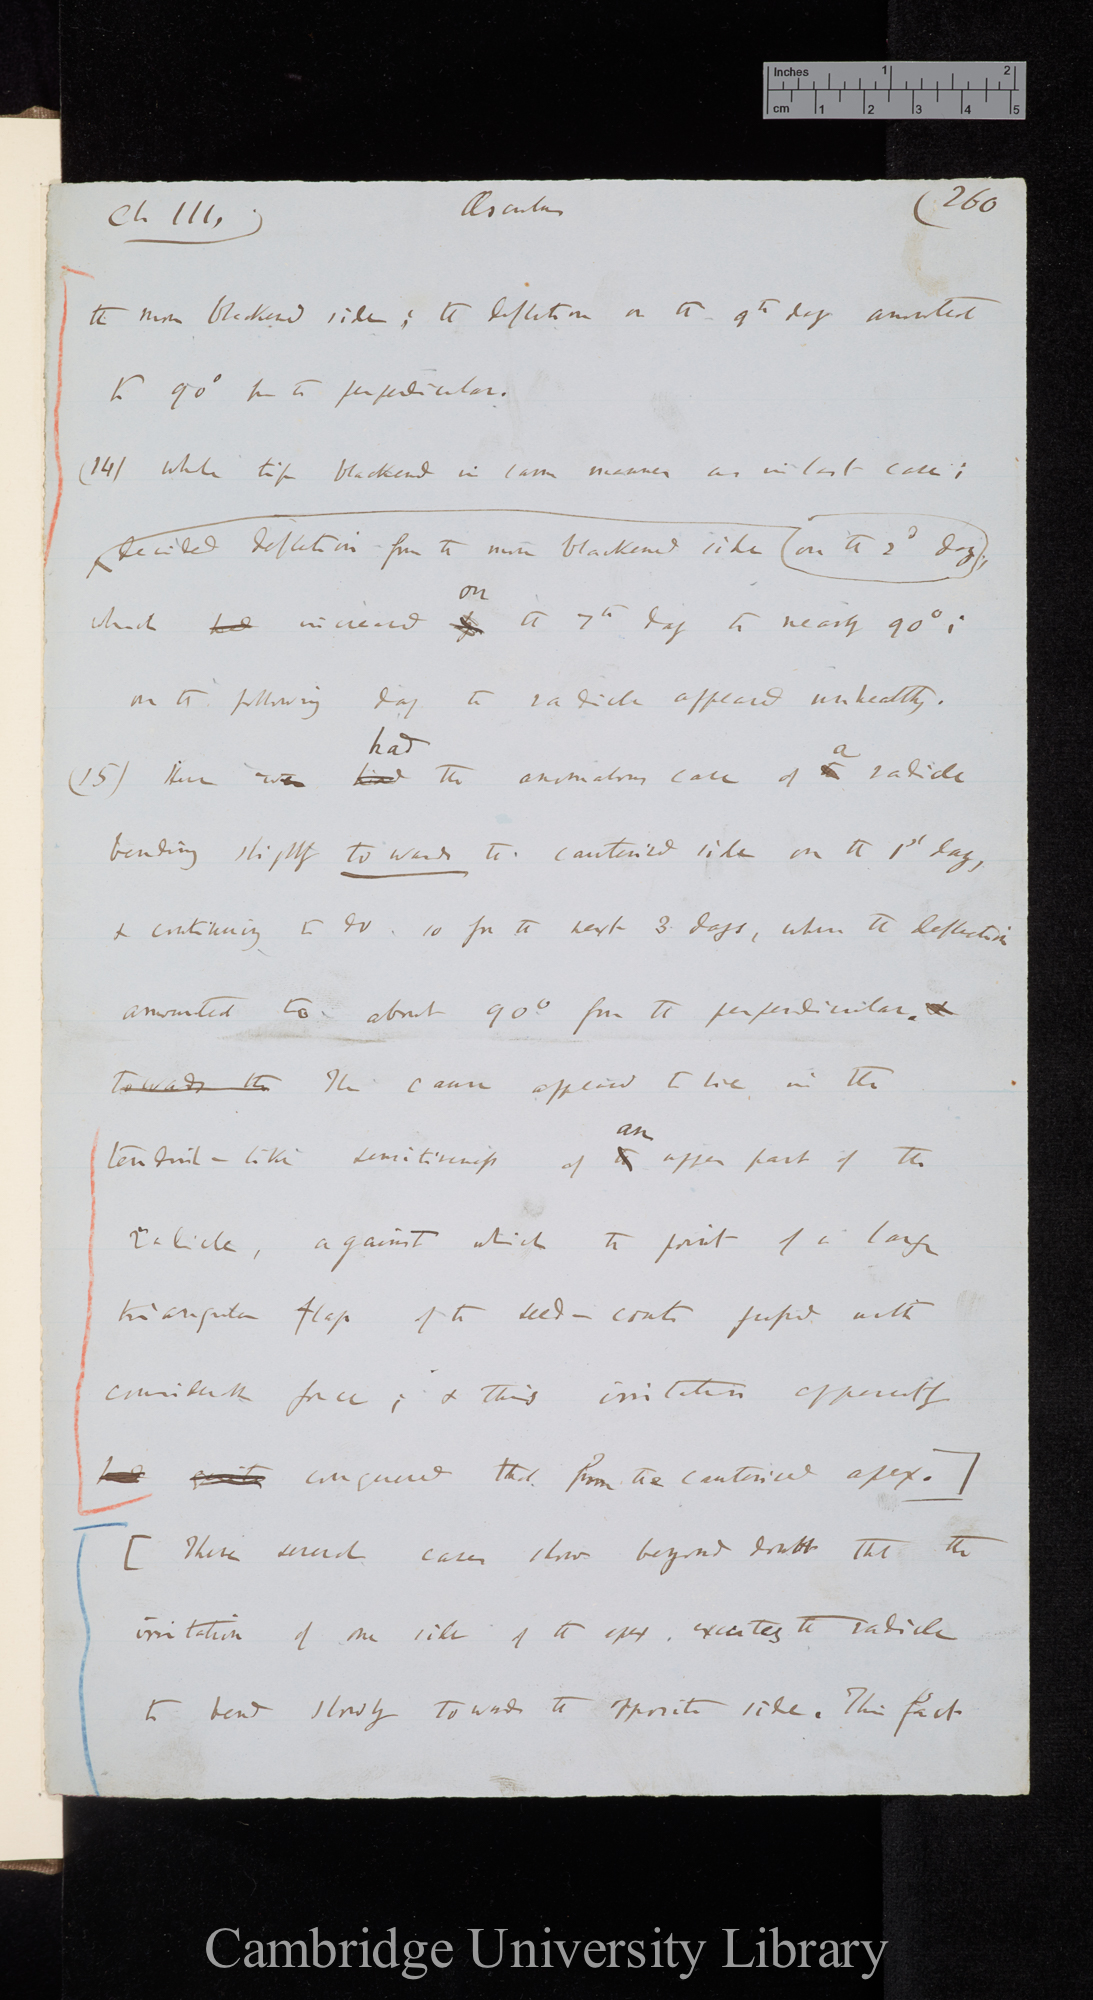 Inches 1 2
cm 1 2 3 4 5
Ch III, Æsculus (260
the more blackened side; the deflection on the 9th day amounted
to 90° from the perpendicular.
(14) whole tip blackened in same manner as in last case;
decided deflection from the more blackened side (on the 2d day),
on
which had increased by the 7th day to nearly 90°;
on the following day the radicle appeared unhealthy.
had
(15) Here we had the anomalous case of the a radicle
bending slightly towards the cauterised side on the 1st day,
& continuing to do so for the next 3 days, when the deflection
amounted to about 90° from the perpendicular. &
towards the The cause appeared to lie in the
an
tendril-like sensitiveness of the upper part of the
radicle, against which the point of a large
triangular flap of the seed-coats pressed with
considerable force; & this irritation apparently
had quite conquered that from the cauterised apex.]
[These several cases show beyond doubt that the
irritation of one side of the apex, excites the radicle
to bend slowly towards the opposite side. This fact
Cambridge University Library